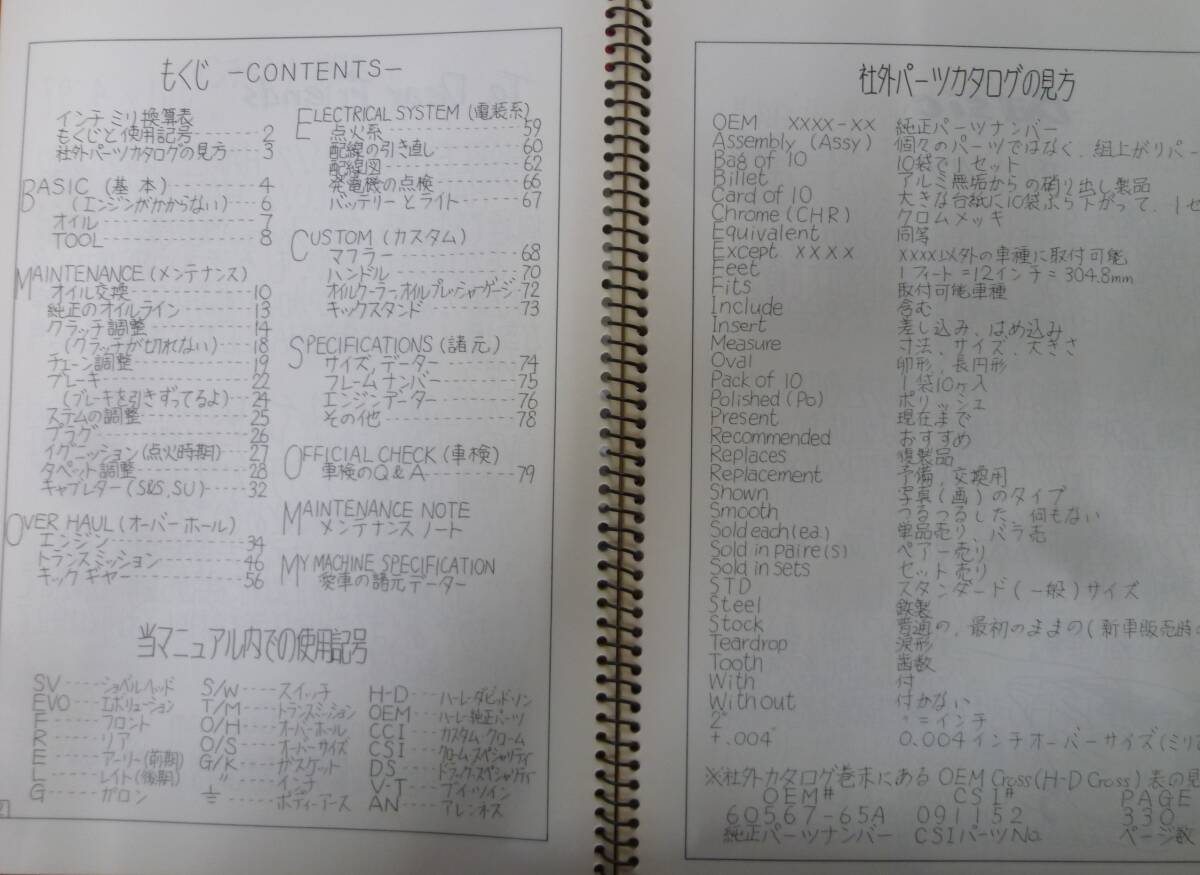 もくじ －CONTENTS－
インチ・ミリ換算表
もくじと使用記号 2
社外パーツカタログの見方 3
BASIC (基本) 4
(エンジンがかからない) 6
オイル 7
TOOL 8
MAINTENANCE (メンテナンス)
オイル交換 10
純正のオイルライン 13
クラッチ調整 14
(クラッチが切れない) 18
チェーン調整 19
ブレーキ 22
(ブレーキを引きずってるよ) 24
ステムの調整 25
プラグ 26
イグニッション(点火時期) 27
タペット調整 28
キャブレター (S&S, SU) 32
OVER HAUL (オーバーホール)
エンジン 34
トランスミッション 46
キックギヤー 56
ELECTRICAL SYSTEM (電装系)
点火系 59
配線の引き直し 60
配線図 62
発電機の点検 66
バッテリーとライト 67
CUSTOM (カスタム)
マフラー 68
ハンドル 70
オイルクーラー,オイルプレッシャーゲージ 72
キックスタンド 73
SPECIFICATIONS (諸元)
サイズ,データー 74
フレームナンバー 75
エンジンデーター 76
その他 78
OFFICIAL CHECK (車検)
車検のQ&A 79
MAINTENANCE NOTE
メンテナンスノート
MY MACHINE SPECIFICATION
愛車の諸元データー
当マニュアル内での使用記号
SV ショベルヘッド
EVO エボリューション
F フロント
R リア
E アーリー(前期)
L レイト(後期)
G ガロン
S/W スイッチ
T/M トランスミッション
O/H オーバーホール
O/S オーバーサイズ
G/K ガスケット
〃 インチ
⏚ ボディーアース
H-D ハーレーダビッドソン
OEM ハーレー純正パーツ
CCI カスタム・クローム
CSI クローム・スペシャリティー
DS ドラッグ・スペシャリティー
V-T ブイ・ツイン
AN アレンネス
社外パーツカタログの見方
OEM XXXX-XX 純正パーツナンバー
Assembly (Assy) 個々のパーツではなく、組上がりパー
Bag of 10 10袋で1セット
Billet アルミ無垢からの削り出し製品
Card of 10 大きな台紙に10袋ぶら下がって、1セ
Chrome (CHR) クロムメッキ
Equivalent 同等
Except XXXX XXXX以外の車種に取付可能
Feet 1フィート=12インチ=304.8mm
Fits 取付可能車種
Include 含む
Insert 差し込み、はめ込み
Measure 寸法、サイズ、大きさ
Oval 卵形、長円形
Pack of 10 1袋10ヶ入
Polished (Po) ポリッシュ
Present 現在まで
Recommended おすすめ
Replaces 複製品
Replacement 予備、交換用
Shown 写真(画)のタイプ
Smooth つるつるした、何もない
Sold each (ea.) 単品売り、バラ売
Sold in paire(s) ペアー売り
Sold in sets セット売り
STD スタンダード(一般)サイズ
Steel 鉄製
Stock 普通の、最初のままの(新車販売時の
Teardrop 涙形
Tooth 歯数
With 付
Without 付かない
2" "=インチ
+.004" 0.004インチオーバーサイズ(ミリ
※社外カタログ巻末にあるOEM Cross(H-D Cross)表の見
OEM# CSI# PAGE
60567-65A 091152 330
純正パーツナンバー CSIパーツNo. ページ数